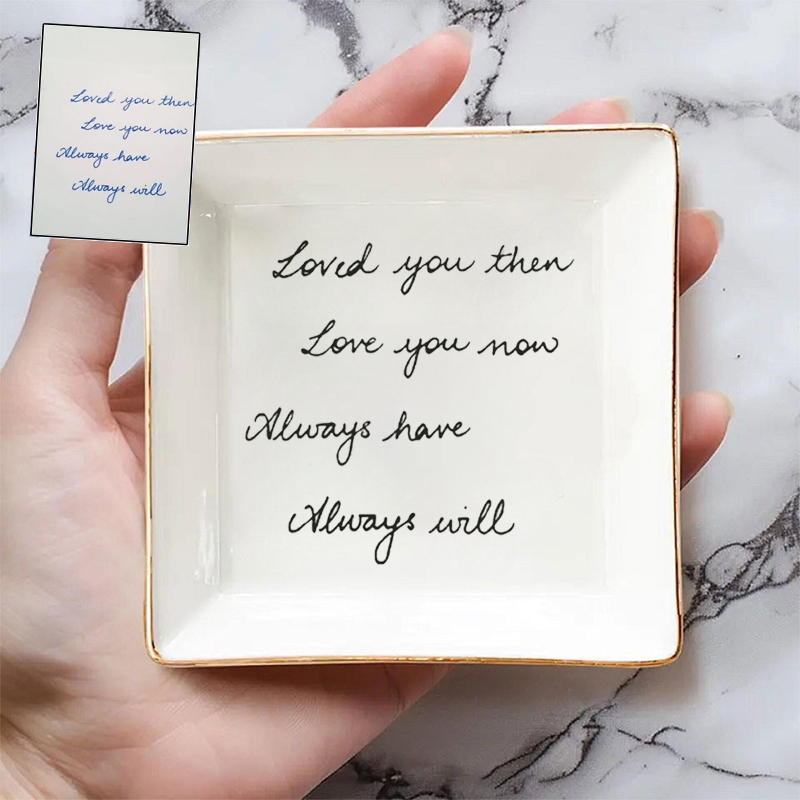 Loved you then
Love you now
Always have
Always will
Loved you then
Love you now
Always have
Always will